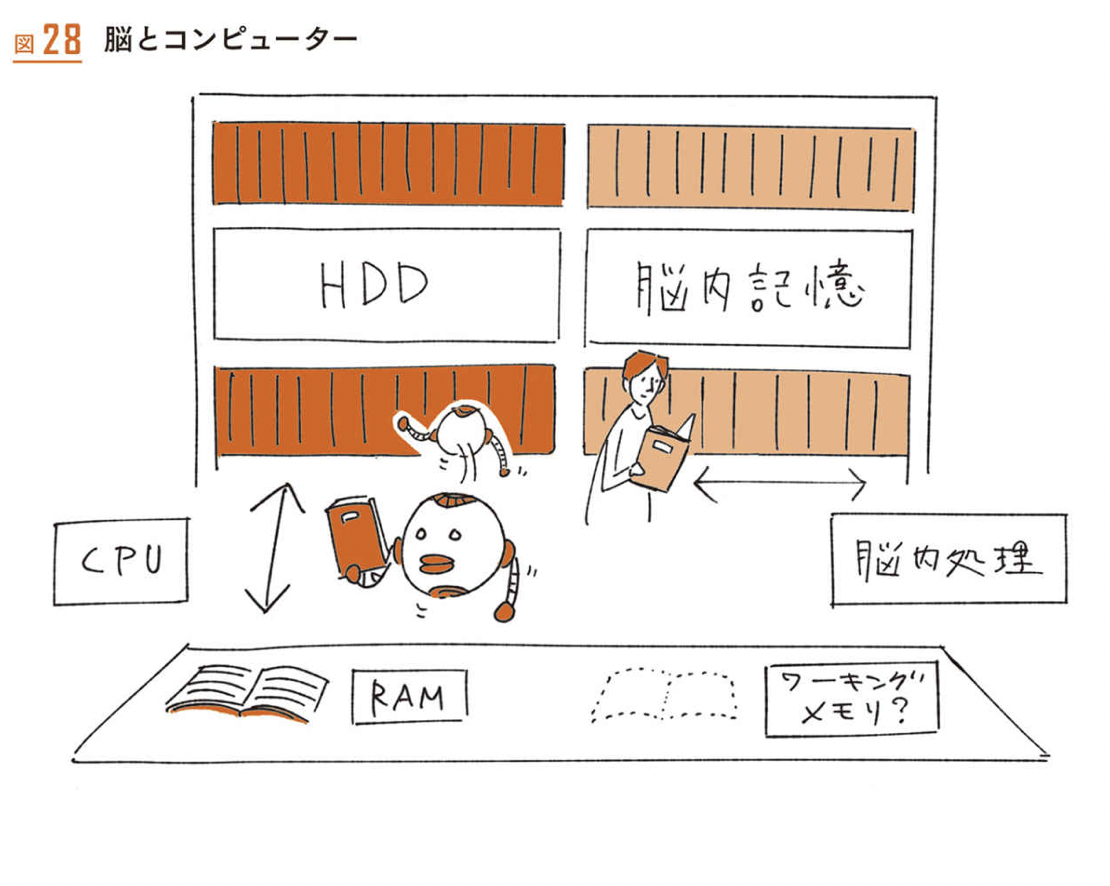 図28 脳とコンピューター
HDD
脳内記憶
CPU
脳内処理
RAM
ワーキング
メモリ?